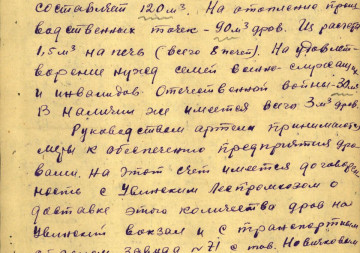 составляет 120 м³. На отопление произ
водственных точек - 90 м³ дров. Из расчета
1,5 м³ на печь (всего 8 печей). На удовлет-
ворение нужд семей военно-служащих
и инвалидов. Отечественной войны - 30 м³
В наличии же имеется всего 3 м³ дров.
Руководством артели принимаются
меры к обеспечению предприятия дро
вами. На этот счет имеется договорен
ность с Увинским Леспромхозом о
доставке этого количества дров на
Увинский вокзал и с транспортным
отделом завода №71 с тов. Новичковым